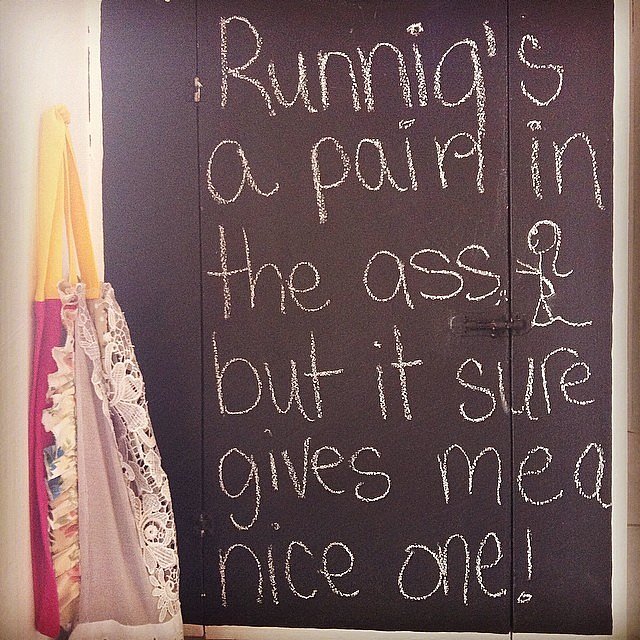 Runnig's
a pain in
the ass..
but it sure
gives me a
nice one!